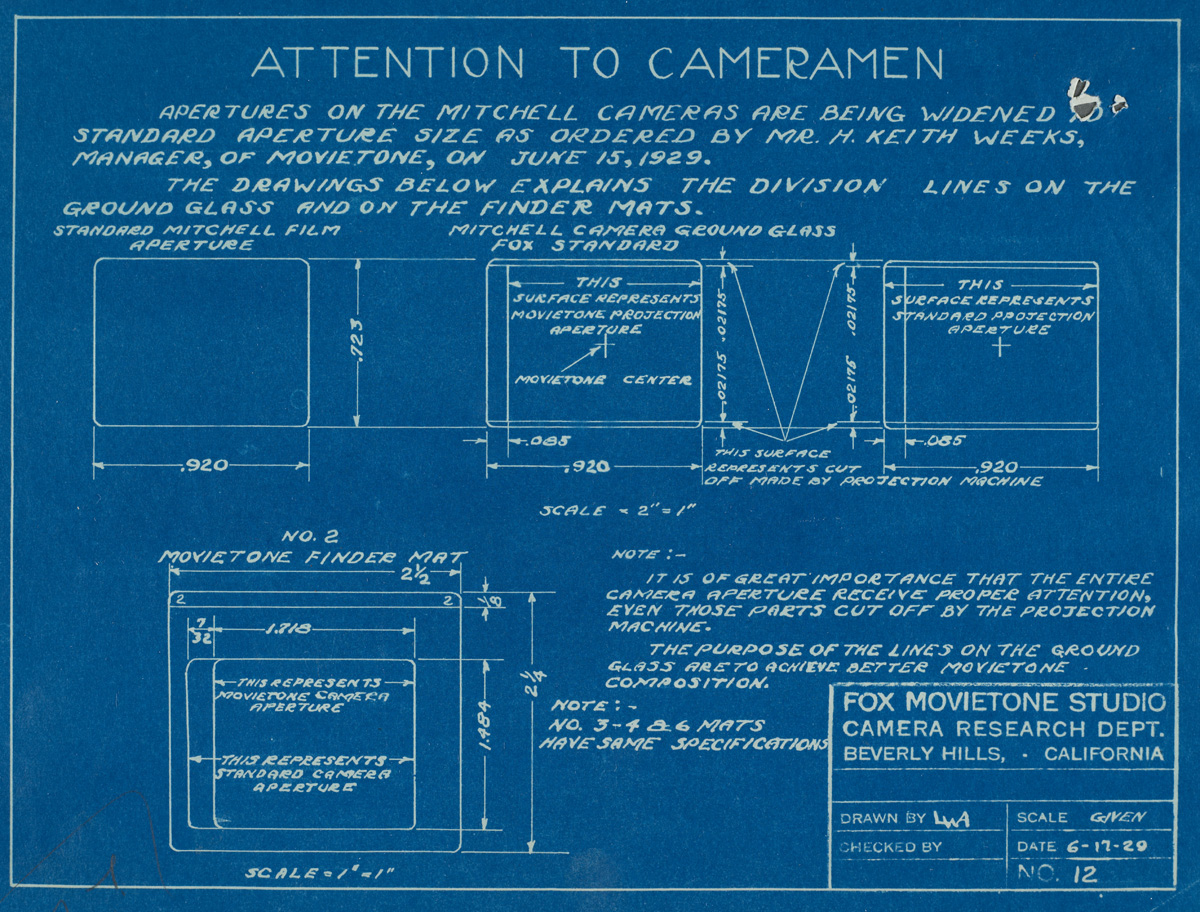 ATTENTION TO CAMERAMEN
APERTURES ON THE MITCHELL CAMERAS ARE BEING WIDENED TO
STANDARD APERTURE SIZE AS ORDERED BY MR. H. KEITH WEEKS,
MANAGER, OF MOVIETONE, ON JUNE 15, 1929.
THE DRAWINGS BELOW EXPLAINS THE DIVISION LINES ON THE
GROUND GLASS AND ON THE FINDER MATS.
STANDARD MITCHELL FILM
APERTURE
.723
.920
MITCHELL CAMERA GROUND GLASS
FOX STANDARD
THIS
SURFACE REPRESENTS
MOVIETONE PROJECTION
APERTURE
MOVIETONE CENTER
.085
.920
.02175
.02175
.02175
.02175
THIS SURFACE
REPRESENTS CUT
OFF MADE BY PROJECTION MACHINE
THIS
SURFACE REPRESENTS
STANDARD PROJECTION
APERTURE
.085
.920
SCALE = 2"=1"
NO. 2
MOVIETONE FINDER MAT
2 1/2
2
2
1/8
7/32
1.718
THIS REPRESENTS
MOVIETONE CAMERA
APERTURE
THIS REPRESENTS
STANDARD CAMERA
APERTURE
1.484
2 1/4
SCALE = 1"=1"
NOTE :-
IT IS OF GREAT IMPORTANCE THAT THE ENTIRE
CAMERA APERTURE RECEIVE PROPER ATTENTION,
EVEN THOSE PARTS CUT OFF BY THE PROJECTION
MACHINE.
THE PURPOSE OF THE LINES ON THE GROUND
GLASS ARE TO ACHIEVE BETTER MOVIETONE
COMPOSITION.
NOTE :-
NO. 3-4 & 6 MATS
HAVE SAME SPECIFICATIONS
FOX MOVIETONE STUDIO
CAMERA RESEARCH DEPT.
BEVERLY HILLS, · CALIFORNIA
DRAWN BY LWA
SCALE GIVEN
CHECKED BY
DATE 6-17-29
NO. 12